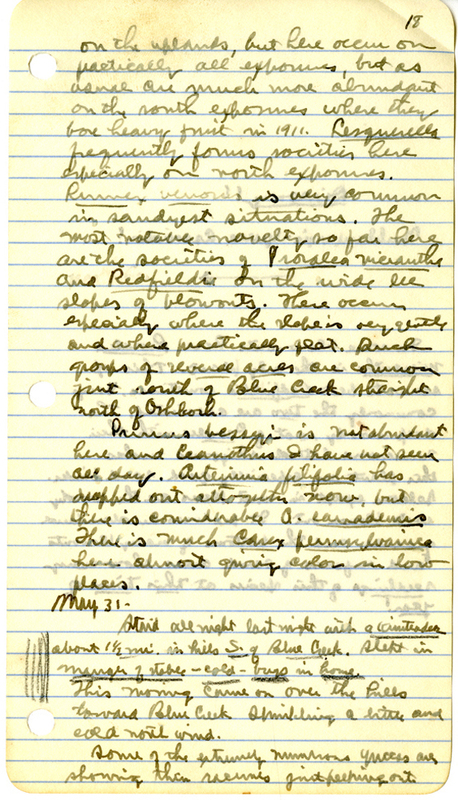 18
on the uplands, but here occur on
practically all exposures, but as
usual are much more abundant
on the south exposures where they
bore heavy fruit in 1911. Lesquerella
frequently forms societies here
especially on north exposures.
Rumex venosus is very common
in sandyest situations. The
most notable novelty so far here
are the societies of Psoralea micrantha
and Redfieldia on the wide lee
slopes of blowouts. These occur
especially where the slope is very gentle
and where practically flat. Such
groups of several acres are common
just north of Blue Creek straight
north of Oshkosh.
Prunus besseyi is not abundant
here and Ceanothus I have not seen
all day. Artemisia filifolia has
dropped out altogether now but
there is considerable A. canadensis
There is much Carex pennsylvanica
here almost giving color in low
places.
May 31-
Staid all night last night with a
about 1½ mi. in hills S. of Blue Creek. Slept in
manger of stable - cold - bugs in
This morning came on over the hills
toward Blue Creek. Sprinkling a little and
cold north wind.
Some of the extremely numerous yuccas are
showing their racemes just peeping out